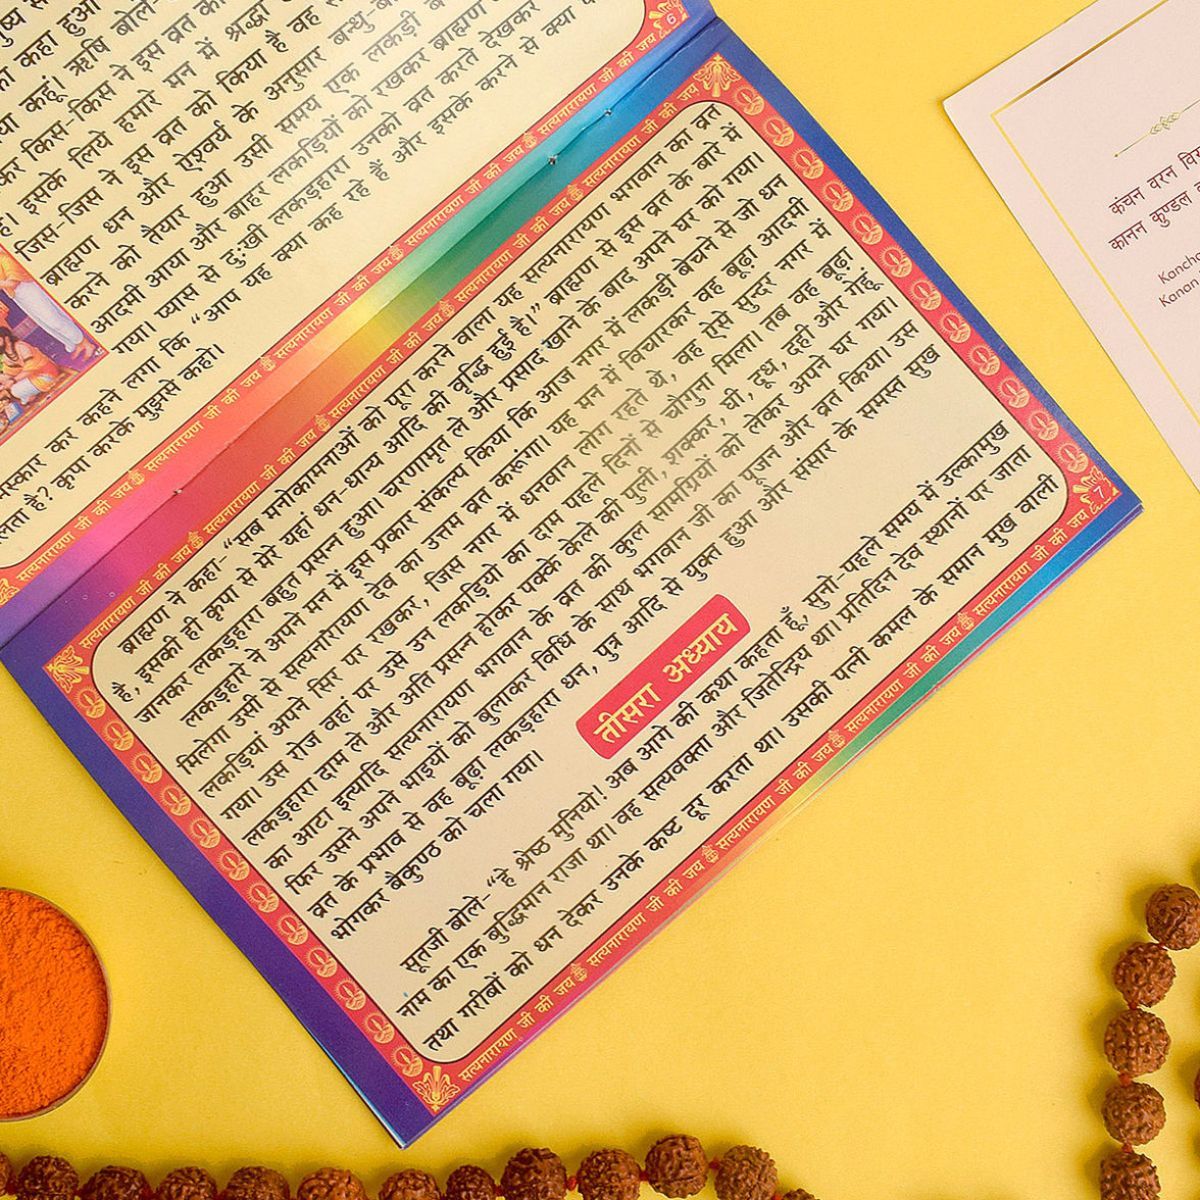 का कहा हुआ
क्या कहूं। ऋषि बोले-
कर किस-किस ने इस व्रत को
है। इसके लिये हमारे मन में श्रद्धा
जिस-जिस ने इस व्रत को किया है वह
ब्राह्मण धन और ऐश्वर्य के अनुसार बन्धु-
करने को तैयार हुआ उसी समय एक लकड़ी
आदमी आया और बाहर लकड़ियों को रखकर ब्राह्मण
गया। प्यास से दुःखी लकड़हारा उनको व्रत करते देखकर
नमस्कार कर कहने लगा कि “आप यह क्या कह रहे हैं और इसके करने से क्या
मिलता है? कृपा करके मुझसे कहो।
6
सत्यनारायण जी की जय सत्यनारायण जी की जय सत्यनारायण जी की जय सत्यनारायण जी की जय
सत्यनारायण जी की जय सत्यनारायण जी की जय सत्यनारायण जी की जय सत्यनारायण जी की जय सत्यनारायण जी की जय
ब्राह्मण ने कहा-“सब मनोकामनाओं को पूरा करने वाला यह सत्यनारायण भगवान का व्रत
है, इसकी ही कृपा से मेरे यहां धन-धान्य आदि की वृद्धि हुई है।” ब्राह्मण से इस व्रत के बारे में
जानकर लकड़हारा बहुत प्रसन्न हुआ। चरणामृत ले और प्रसाद खाने के बाद अपने घर को गया।
लकड़हारे ने अपने मन में इस प्रकार संकल्प किया कि आज नगर में लकड़ी बेचने से जो धन
मिलेगा उसी से सत्यनारायण देव का उत्तम व्रत करूंगा। यह मन में विचारकर वह बूढ़ा आदमी
लकड़ियां अपने सिर पर रखकर, जिस नगर में धनवान लोग रहते थे, वह ऐसे सुन्दर नगर में
गया। उस रोज वहां पर उसे उन लकड़ियों का दाम पहले दिनों से चौगुना मिला। तब वह बूढ़ा
लकड़हारा दाम ले और अति प्रसन्न होकर पक्के केले की पुली, शक्कर, घी, दूध, दही और गेहूँ
का आटा इत्यादि सत्यनारायण भगवान के व्रत की कुल सामग्रियों को लेकर अपने घर गया।
फिर उसने अपने भाइयों को बुलाकर विधि के साथ भगवान जी का पूजन और व्रत किया। उस
व्रत के प्रभाव से वह बूढ़ा लकड़हारा धन, पुत्र आदि से युक्त हुआ और संसार के समस्त सुख
भोगकर बैकुण्ठ को चला गया।
तीसरा अध्याय
सूतजी बोले-“हे श्रेष्ठ मुनियो! अब आगे की कथा कहता हूँ, सुनो-पहले समय में उल्कामुख
नाम का एक बुद्धिमान राजा था। वह सत्यवक्ता और जितेन्द्रिय था। प्रतिदिन देव स्थानों पर जाता
तथा गरीबों को धन देकर उनके कष्ट दूर करता था। उसकी पत्नी कमल के समान मुख वाली
सत्यनारायण जी की जय सत्यनारायण जी की जय सत्यनारायण जी की जय सत्यनारायण जी की जय सत्यनारायण जी की जय
7
कंचन वरन
कानन कुण्डल
Kanan